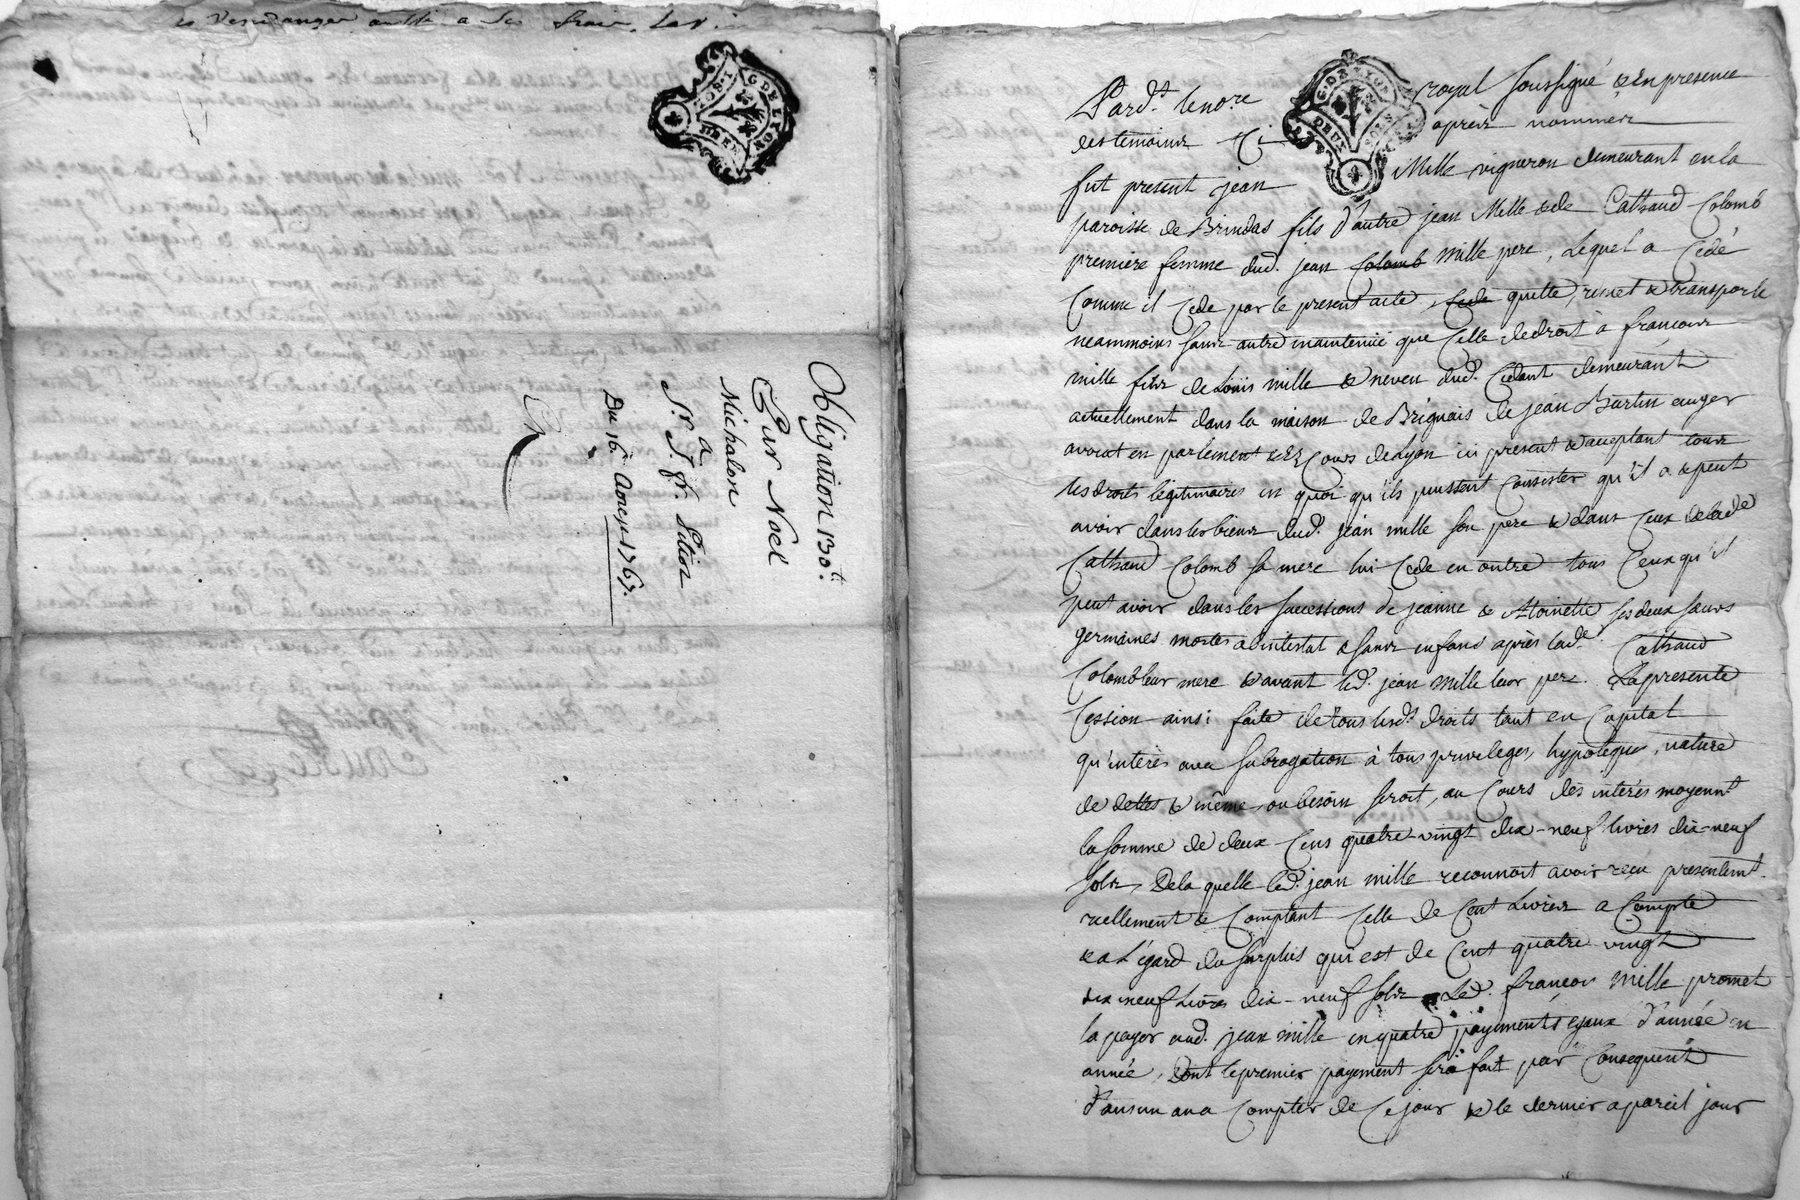 Obligation 130.tt
Pour Noel
Michalon
a
Sr. J. fr.
Du 16. aoust 1767.
G. DE LYON
G. DE LYON
DEUX SOLS
Pard.t lenore royal soussigné & En presence
des temoins Ci après nommer
fut present jean Mille vigneron demeurant en la
paroisse de Brindas fils d'autre jean Mille & de Cathaud Colomb
premiere femme dud. jean Colomb mille pere, Lequel a Cedé
Comme il Cede par le present acte, Cede quitte, remet & transporte
neammoins sans autre maintenüe que Celle de droit à francois
mille fils de Loüis mille & neveu dud. Cedant demeurant
actuellement dans la maison de Brignais de jean Martin auger
avocat en parlement & Es Cours de Lyon ici present & acceptant tous
les droits légitimaires en quoi qu'ils puissent Consister qu'il a & peut
avoir dans les biens dud. jean mille son pere & dans Ceux de lade
Cathaud Colomb sa mere lui Cede en outre tous Ceux qu'il
peut avoir dans les successions de jeanne & Atoinette ses deux sœurs
germaines mortes abintestat & sans enfans après lade. Cathaud
Colomb leur mere & avant led. jean mille leur pere. La presente
Cession ainsi faite de tous lesd.s droits tant en Capital
qu'intérès avec subrogation à tous privileges, hypoteques, nature
de dettes & même, ou besoin seroit, au Cours des intérès moyenn.t
la somme de deux Cens quatre-vingt dix-neuf livres dix-neuf
sols, De la quelle led. jean mille reconnoit avoir recu presentemt.
reellement & Comptant Celle de Cent Livres a Compte
& a L'égard du surplus qui est de Cent quatre vingt
dix neuf Livres dix-neuf sols Led. françois mille promet
la payer aud. jean mille en quatre payements egaux d'année en
année, Dont le premier payement sera fait par Consequent
d'ausun an a Compter de Ce jour & le dernier a pareil jour